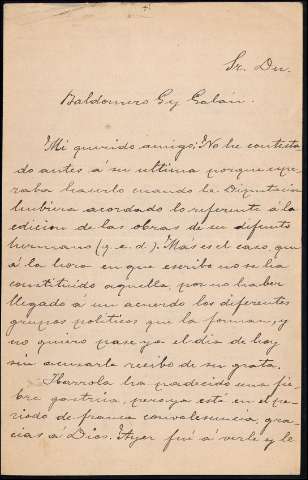 Sr. Dn.
Baldomero G. y Galán.
Mi querido amigo: No he contesta
do antes á su última porque espe
raba hacerlo cuando la Diputación
hubiera acordado lo referente á la
edición de las obras de su difunto
hermano (q. e. d.). Más es el caso, que
á la hora en que escribo no se ha
constituido aquella, por no haber
llegado á un acuerdo los diferentes
grupos politicos que la forman, y
no quiero pase ya el dia de hoy
sin acusarle recibo de su grata.
Iharrola ha padecido una fie
bre gastrica, pero ya está en el pe
riodo de franca convalesencia, gra
cias á Dios. Ayer fui á verle y le